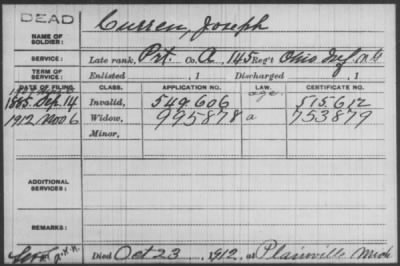 DEAD
NAME OF SOLDIER: Curren, Joseph
SERVICE: Late rank, Prt. Co. A, 145 Reg't Ohio Inf. N.G.
TERM OF SERVICE: Enlisted , 1 Discharged , 1
DATE OF FILING. CLASS. APPLICATION NO. LAW. CERTIFICATE NO.
1885 Sep. 14 Invalid, 549.606 age. 515.612
1912 Nov 6 Widow, 995878 a 753879
Minor,
ADDITIONAL SERVICES:
REMARKS:
Died Oct 23, 1912, at Plainville Mich